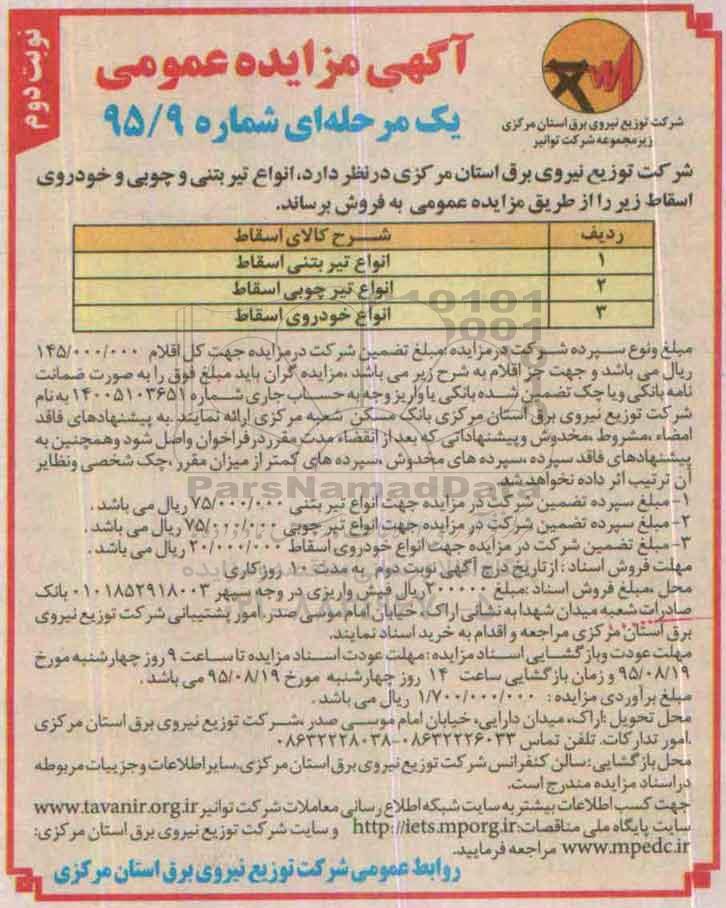 نوبت دوم
آگهی مزایده عمومی
یک مرحله‌ای شماره ۹۵/۹
شرکت توزیع نیروی برق استان مرکزی
زیرمجموعه شرکت توانیر
شرکت توزیع نیروی برق استان مرکزی درنظر دارد، انواع تیر بتنی و چوبی و خودروی
اسقاط زیر را از طریق مزایده عمومی به فروش برساند.
ردیف شرح کالای اسقاط
۱ انواع تیر بتنی اسقاط
۲ انواع تیر چوبی اسقاط
۳ انواع خودروی اسقاط
مبلغ ونوع سپرده شرکت درمزایده :مبلغ تضمین شرکت درمزایده جهت کل اقلام ۱۴۵/۰۰۰/۰۰۰
ریال می باشد و جهت جز اقلام به شرح زیر می باشد .مزایده گران باید مبلغ فوق را به صورت ضمانت
نامه بانکی ویا چک تضمین شده بانکی یا واریز وجه به حساب جاری شماره ۱۴۰۰۵۱۰۳۶۵۱ به نام
شرکت توزیع نیروی برق استان مرکزی بانک مسکن شعبه مرکزی ارائه نمایند .به پیشنهادهای فاقد
امضاء ،مشروط ،مخدوش وپیشنهاداتی که بعد از انقضاء مدت مقرر درفراخوان واصل شود وهمچنین به
پیشنهادهای فاقد سپرده ،سپرده های مخدوش ،سپرده های کمتر از میزان مقرر ،چک شخصی ونظایر
آن ترتیب اثر داده نخواهد شد.
ParsNamadData
۱- مبلغ سپرده تضمین شرکت در مزایده جهت انواع تیر بتنی ۷۵/۰۰۰/۰۰۰ ریال می باشد .
۲- مبلغ سپرده تضمین شرکت در مزایده جهت انواع تیر چوبی ۷۵/۰۰۰/۰۰۰ ریال می باشد .
۳- مبلغ تضمین شرکت در مزایده جهت انواع خودروی اسقاط ۲۰/۰۰۰/۰۰۰ ریال می باشد .
مهلت فروش اسناد : از تاریخ درج آگهی نوبت دوم به مدت ۱۰ روز کاری
محل ،مبلغ فروش اسناد :مبلغ ۳۰۰۰۰۰ ریال فیش واریزی در وجه سپهر ۰۱۰۱۸۵۲۹۱۸۰۰۳ بانک
صادرات شعبه میدان شهدا به نشانی اراک ، خیابان امام موسی صدر .امور پشتیبانی شرکت توزیع نیروی
برق استان مرکزی مراجعه و اقدام به خرید اسناد نمایند.
مهلت عودت وباز گشایی اسناد مزایده : مهلت عودت اسناد مزایده تا ساعت ۹ روز چهارشنبه مورخ
۹۵/۰۸/۱۹ و زمان بازگشایی ساعت ۱۴ روز چهارشنبه مورخ ۹۵/۰۸/۱۹ می باشد .
مبلغ برآوردی مزایده : ۱/۷۰۰/۰۰۰/۰۰۰ ریال می باشد .
محل تحویل :اراک، میدان دارایی، خیابان امام موسی صدر ،شرکت توزیع نیروی برق استان مرکزی
.امور تدارکات. تلفن تماس ۰۸۶۳۲۲۲۶۰۳۳-۰۸۶۳۲۲۲۸۰۳۸
محل بازگشایی: سالن کنفرانس شرکت توزیع نیروی برق استان مرکزی،سایر اطلاعات و جزییات مربوطه
دراسناد مزایده مندرج است.
جهت کسب اطلاعات بیشتر به سایت شبکه اطلاع رسانی معاملات شرکت توانیر www.tavanir.org.ir
سایت پایگاه ملی مناقصات: http://iets.mporg.ir و سایت شرکت توزیع نیروی برق استان مرکزی:
www.mpedc.ir مراجعه فرمایید.
روابط عمومی شرکت توزیع نیروی برق استان مرکزی